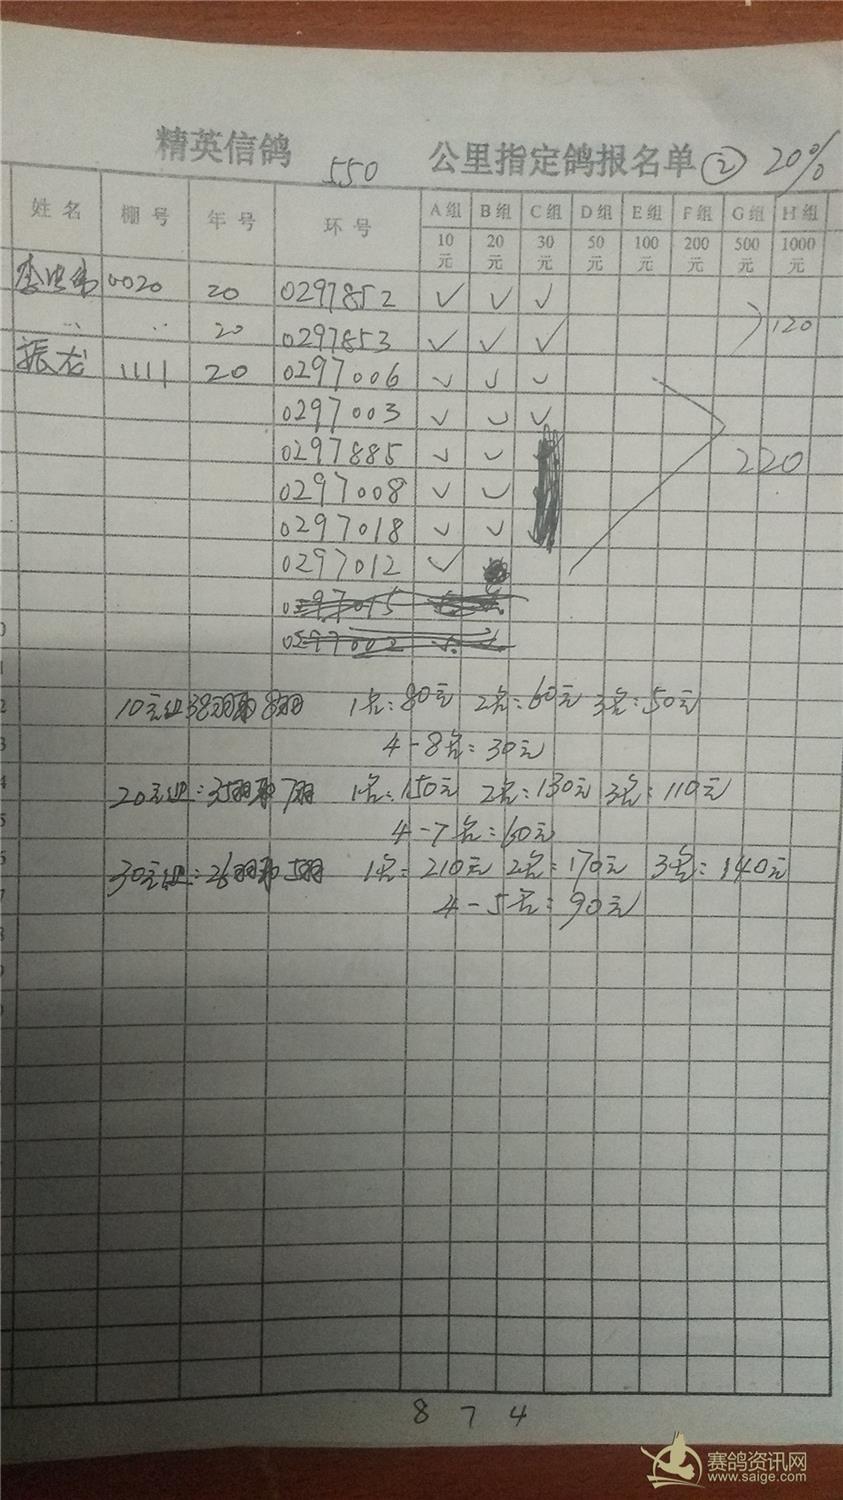 精英信鸽 550 公里指定鸽报名单 ② 20%
姓名 棚号 年号 环号 A组 B组 C组 D组 E组 F组 G组 H组
10元 20元 30元 50元 100元 200元 500元 1000元
李 0020 20 0297852 ✓ ✓ ✓
〃 〃 20 0297853 ✓ ✓ ✓ 120
振龙 1111 20 0297006 ✓ ✓ ✓
0297003 ✓ ✓ ✓
0297885 ✓ ✓ 220
0297008 ✓ ✓
0297018 ✓ ✓
0297012 ✓
0297015
0297002
10元 38羽取8羽 1名:80元 2名:60元 3名:50元
4-8名:30元
20元 :35羽取7羽 1名:150元 2名:130元 3名:110元
4-7名:60元
30元 :26羽取5羽 1名:210元 2名:170元 3名:140元
4-5名:90元
8 7 4
赛鸽资讯网
www.saige.com